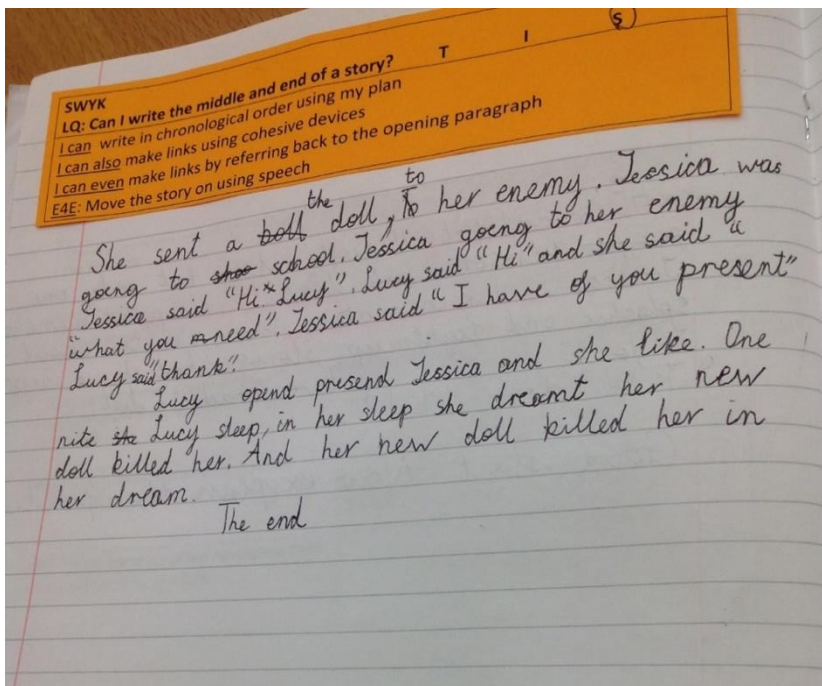 SWYK T I S
LQ: Can I write the middle and end of a story?
I can write in chronological order using my plan
I can also make links using cohesive devices
I can even make links by referring back to the opening paragraph
E4E: Move the story on using speech
the to
She sent a boll doll, to her enemy. Jessica was
goeng to shoo school. Jessica goeng to her enemy
"Jessica said "Hi Lucy". Lucy said "Hi" and she said "
what you need". Jessica said "I have of you present"
Lucy said "thank".
Lucy opend presend Jessica and she like. One
nite she Lucy sleep, in her sleep she dreamt her new
doll killed her. And her new doll killed her in
her dream.
The end